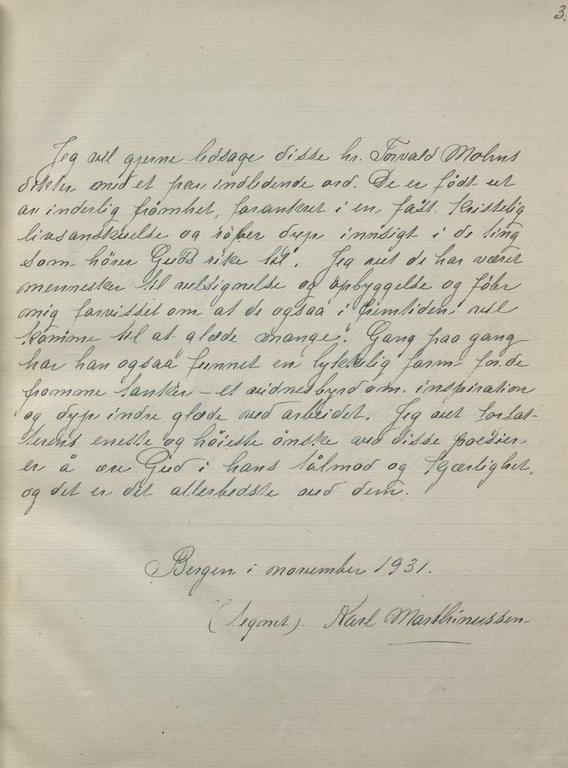 3.
Jeg vil gjerne ledsage disse hr. Torvald Mohns
dikter med et par indledende ord. De er født ut
av inderlig fromhet, forankret i en fast kristelig
livsanskuelse og røber dyp innsigt i de ting
som hører Guds rike til. Jeg vet de har været
mennesker til velsignelse og opbyggelse og føler
mig forvisset om at de ogsaa i fremtiden vil
komme til at glæde mange. Gang paa gang
har han ogsaa funnet en lykkelig form for de
fromme tanker – et vidnesbyrd om inspiration
og dyp indre glæde ved arbeidet. Jeg vet forfat-
terens eneste og høieste ønske ved disse poesier
er å ære Gud i hans tålmod og kjærlighet,
og det er det allerbedste ved dem.
Bergen i november 1931.
(Segnet). Karl Marthinussen